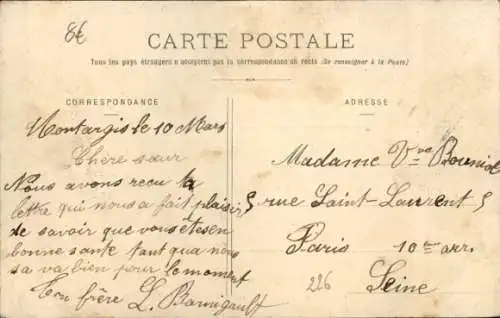 8€
CARTE POSTALE
Tous les pays étrangers n'acceptent pas la correspondance au recto (Se renseigner à la Poste)
CORRESPONDANCE
Montargis le 10 Mars
Chère sœur
Nous avons recu ta
lettre qui nous a fait plaisir
de savoir que vous étes en
bonne sante tant qua nous
sa va bien pour le moment
Ton frère L.
ADRESSE
Madame Vve
5 rue Saint-Laurent 5
Paris 10me arr.
226 Seine